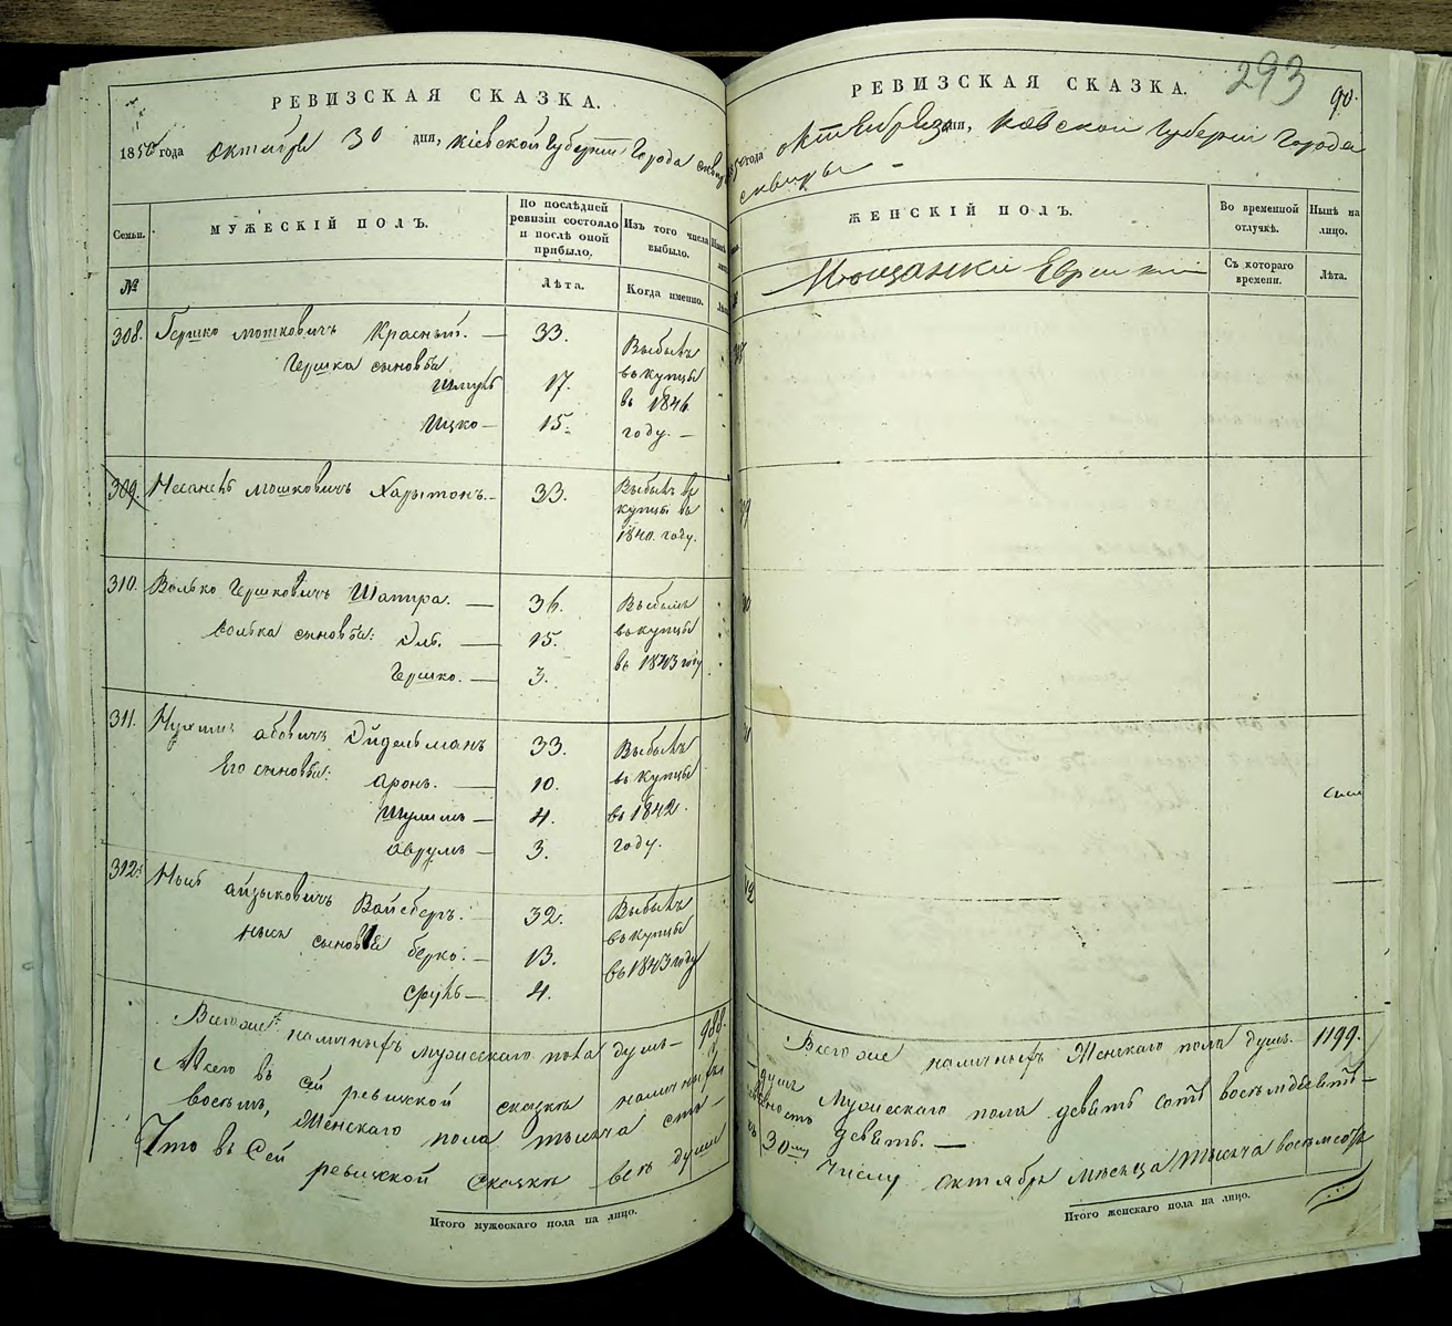 РЕВИЗСКАЯ СКАЗКА.
1850 года октября 30 дня, Кіевской Губерніи Города Сквиры
Семьи. МУЖЕСКІЙ ПОЛЪ. По послѣдней ревизіи состояло и послѣ оной прибыло. Изъ того числа выбыло.
№ Лѣта. Когда именно.
308. Гершко Мошковичъ Красный. — 33. Выбылъ
Гершка сыновья въ купцы
Шмуль 17. въ 1846
Ицко — 15. году. —
309. Мошковичъ Харытонъ. — 33. Выбылъ въ
купцы въ
1840. году.
310. Волько Гершковичъ Шапира. — 36. Выбылъ
Волька сыновья: Эль. — 15. въ купцы
Гершко. — 3. въ 1843 году
311. Абовичъ Эйдельманъ 33. Выбылъ
Его сыновья: Аронъ. — 10. въ купцы
Шулимъ — 4. въ 1842.
Аврумъ — 3. году.
312. Айзыковичъ Вайсбергъ. — 32. Выбылъ
сыновья Берко. — 13. въ купцы
Сруль — 4. въ 1843 году
Всего же наличныхъ мужескаго пола душъ — 988.
Всего въ сей ревизской сказкѣ наличныхъ
восемь, Женскаго пола тысяча сто —
Что въ сей ревизской сказкѣ всѣ души
Итого мужескаго пола на лицо.
293
90.
РЕВИЗСКАЯ СКАЗКА.
1850 года октября 30 дня, Кіевской Губерніи Города
Сквиры —
ЖЕНСКІЙ ПОЛЪ. Во временной отлучкѣ. Нынѣ на лицо.
Мѣщанки Евреи Съ котораго времени. Лѣта.
Всего же наличныхъ Женскаго пола душъ. 1199.
душъ Мужескаго пола девять сотъ восемдесятъ —
девяносто девять. —
30му числу октября мѣсяца тысяча восемсотъ
Итого женскаго пола на лицо.